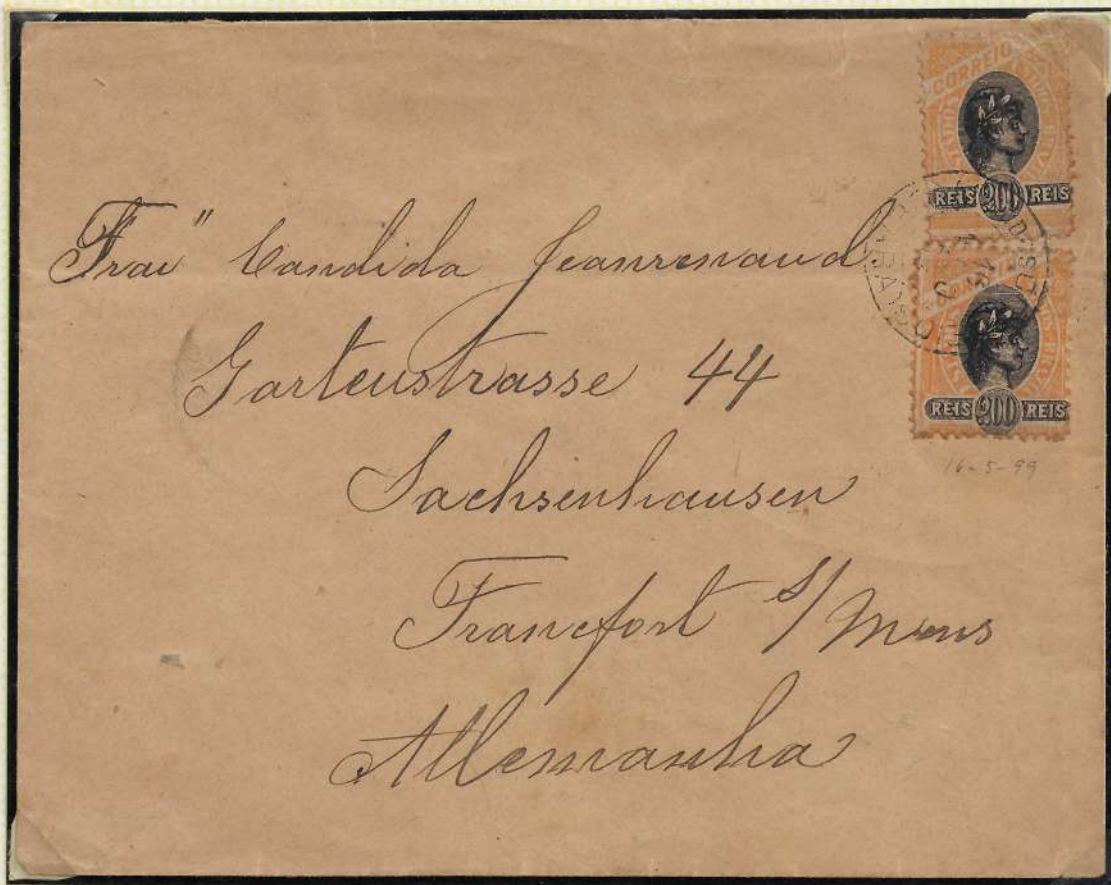 CORREIO
REIS 200 REIS
REIS 200 REIS
16-5-99
Frau" Candida Jeanrenaud
Gartenstrasse 44
Sachsenhausen
Francfort s/ Mens
Allemanha